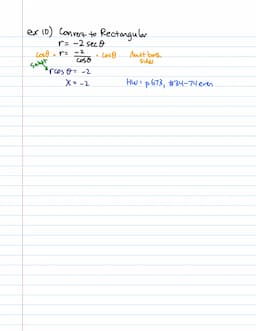 ex 10) Convert to Rectangular
r = -2 sec θ
cosθ · r = -2/cosθ · cosθ mult both sides
r cos θ = -2
x = -2 HW: p 673, #34-74 even